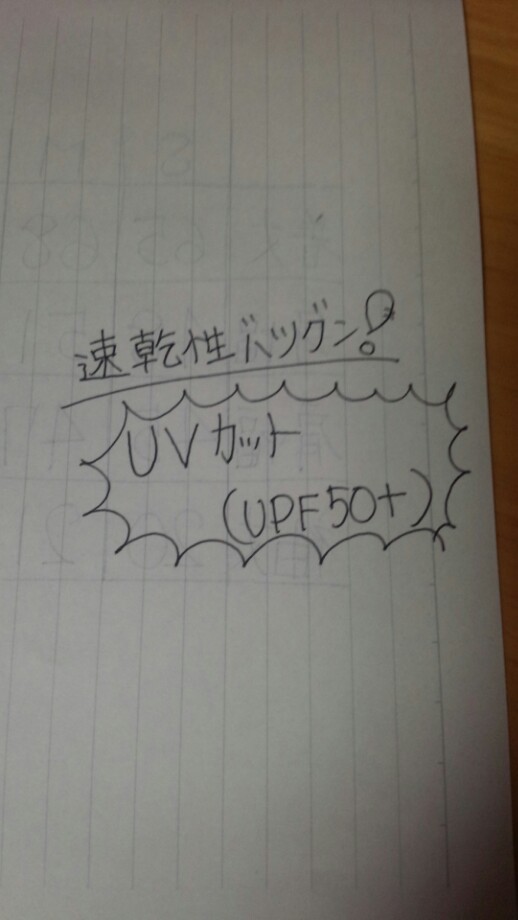 速乾性バツグン!
UVカット
(UPF50+)